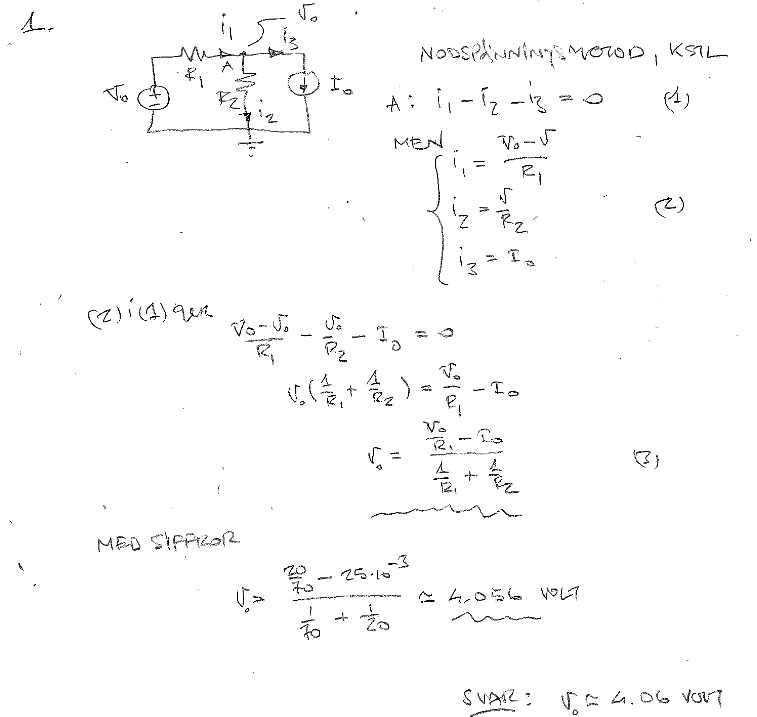 1.
i₁ v₀ i₃
R₁ A
V₀ R₂ I₀
i₂
NODSPÄNNINGSMETOD, KSTL
A: i₁ - i₂ - i₃ = 0 (1)
MEN
i₁ = (V₀ - v)/R₁
i₂ = v/R₂ (2)
i₃ = I₀
(2) i (1) ger
(V₀ - v₀)/R₁ - v₀/R₂ - I₀ = 0
v₀(1/R₁ + 1/R₂) = V₀/R₁ - I₀
v₀ = (V₀/R₁ - I₀)/(1/R₁ + 1/R₂) (3)
MED SIFFROR
v₀ = (20/70 - 25·10⁻³)/(1/70 + 1/20) ≃ 4.056 VOLT
SVAR: v₀ ≃ 4.06 VOLT